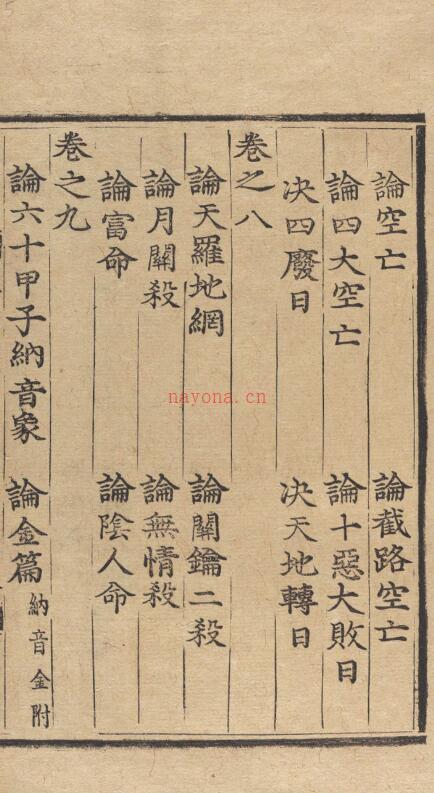 論空亡 論截路空亡
論四大空亡 論十惡大敗日
决四廢日 决天地轉日
卷之八
論天羅地網 論關鑰二殺
論月闢殺 論無情殺
論富命 論陰人命
卷之九
論六十甲子納音象 論金篇 納音金附
nayona.cn